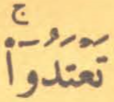 تَعْتَدُوٓا۟ ۚ